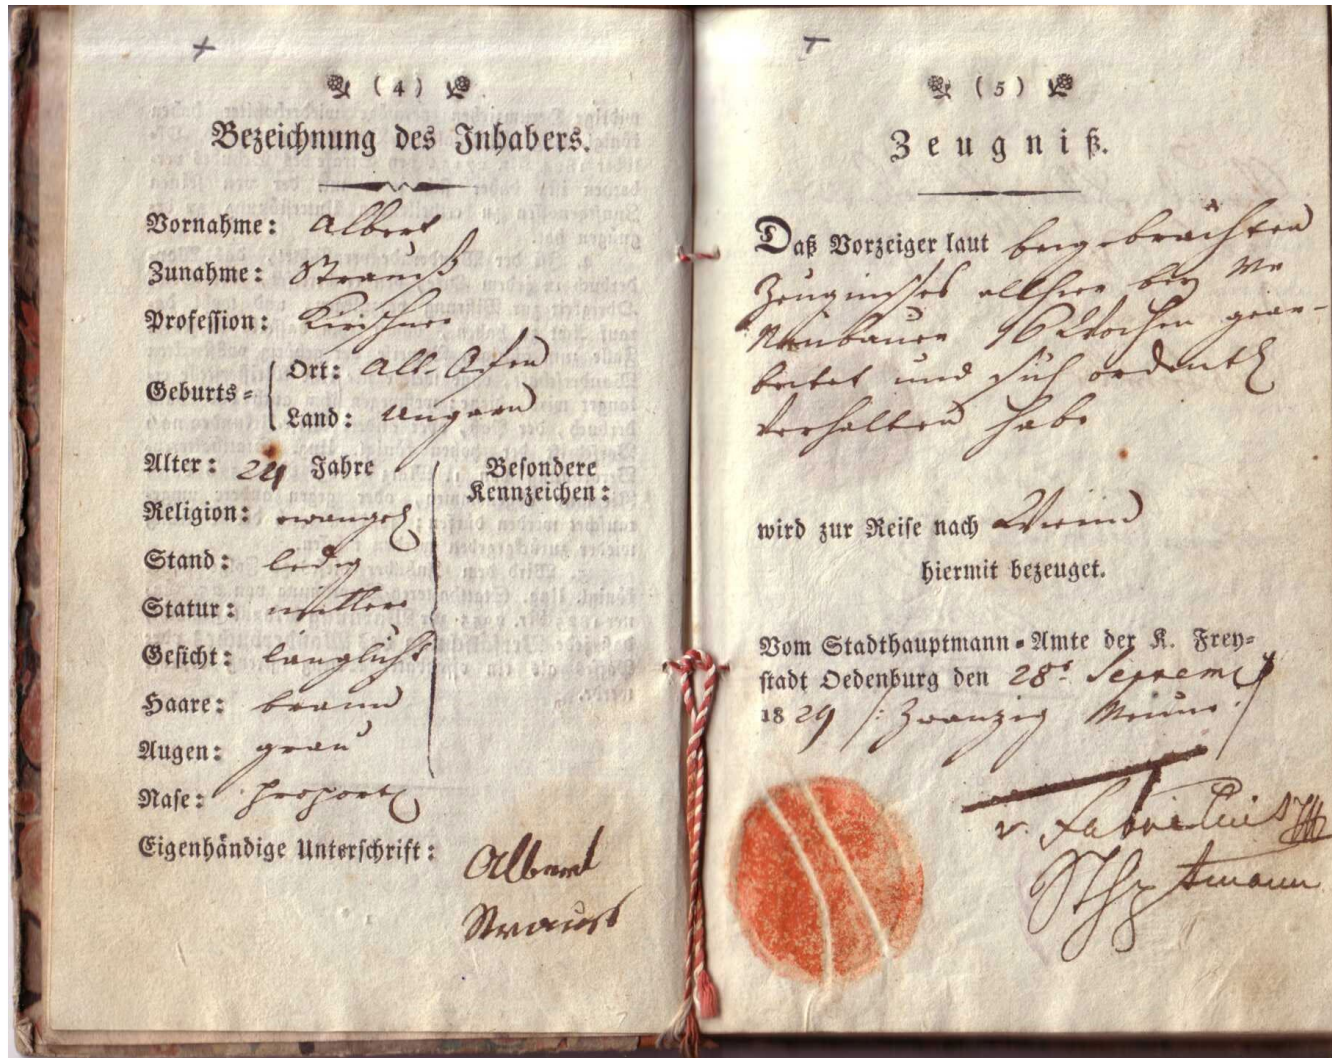 ( 4 )
Bezeichnung des Inhabers.
Vornahme: Albert
Zunahme: Strauß
Profession: Kirschner
Geburts= Ort: Alt-Ofen
Land: Ungarn
Alter: 24 Jahre
Besondere Kennzeichen:
Religion: evangel
Stand: ledig
Statur: mittlere
Gesicht: länglicht
Haare: braun
Augen: grau
Nase: proport
Eigenhändige Unterschrift:
Albert
Strauss
( 5 )
Zeugniß.
Daß Vorzeiger laut beygebrachten
Zeugnisses allhier bey
Neubauer 16 Wochen gear-
beitet und sich ordentl
verhalten habe
wird zur Reise nach Wien
hiermit bezeuget.
Vom Stadthauptmann=Amte der K. Frey=
stadt Oedenburg den 28t Septem
1829 /: Zwanzig Neun :/
v. Fabricius
Sthptmann